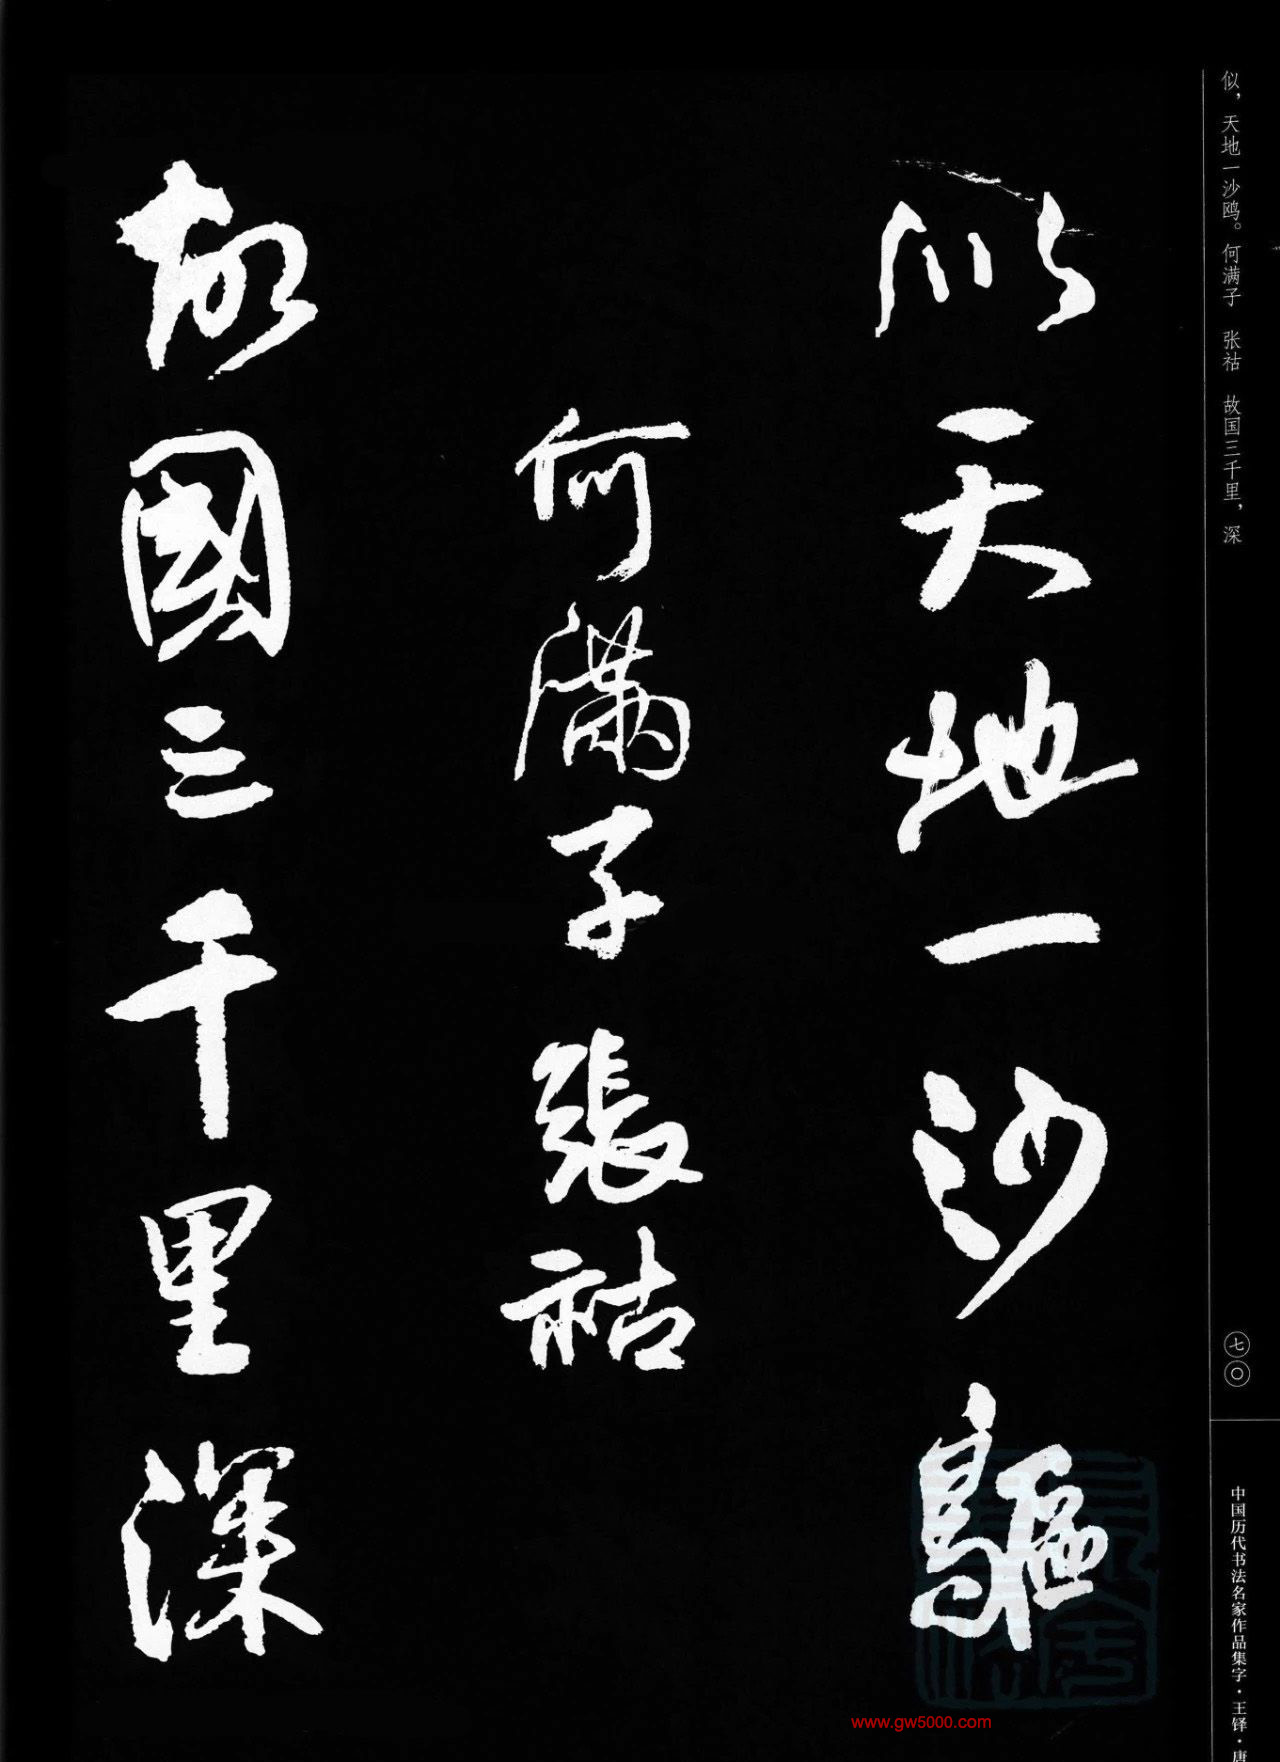 似，天地一沙鸥。何满子　张祜　故国三千里，深
似天地一沙驅
何滿子張祜
故國三千里深
七〇
中国历代书法名家作品集字·王铎·唐
www.gw5000.com